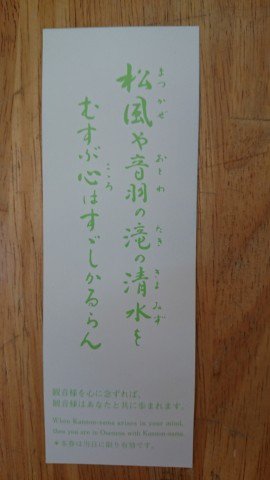 松風や音羽の滝の清水を
むすぶ心はすゞしかるらん
観音様を心に念ずれば、
観音様はあなたと共に歩まれます。
When Kannon-sama arises in your mind,
then you are in Oneness with Kannon-sama.
＊本券は当日に限り有効です。
まつかぜ おとわ たき きよみず
こころ